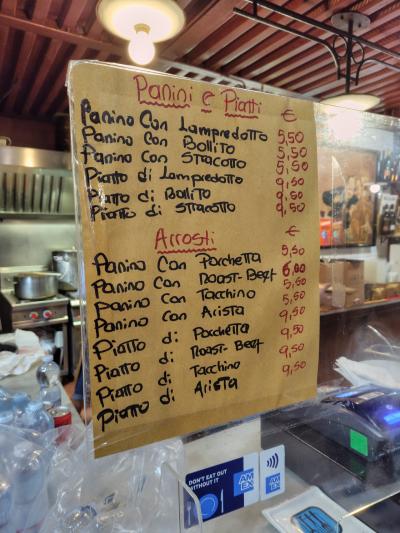 Panini e Piatti €
Panino Con Lampredotto 5,50
Panino Con Bollito 5,50
Panino Con Stracotto 5,50
Piatto di Lampredotto 9,50
Piatto di Bollito 9,50
Piatto di Stracotto 9,50
Arrosti €
Panino Con Porchetta 5,50
Panino Con Roast-Beef 6,00
Panino Con Tacchino 5,50
Panino Con Arista 5,50
Piatto di Porchetta 9,50
Piatto di Roast-Beef 9,50
Piatto di Tacchino 9,50
Piatto di Arista 9,50
DON'T EAT OUT
WITHOUT IT
AM
EX
AM
EX